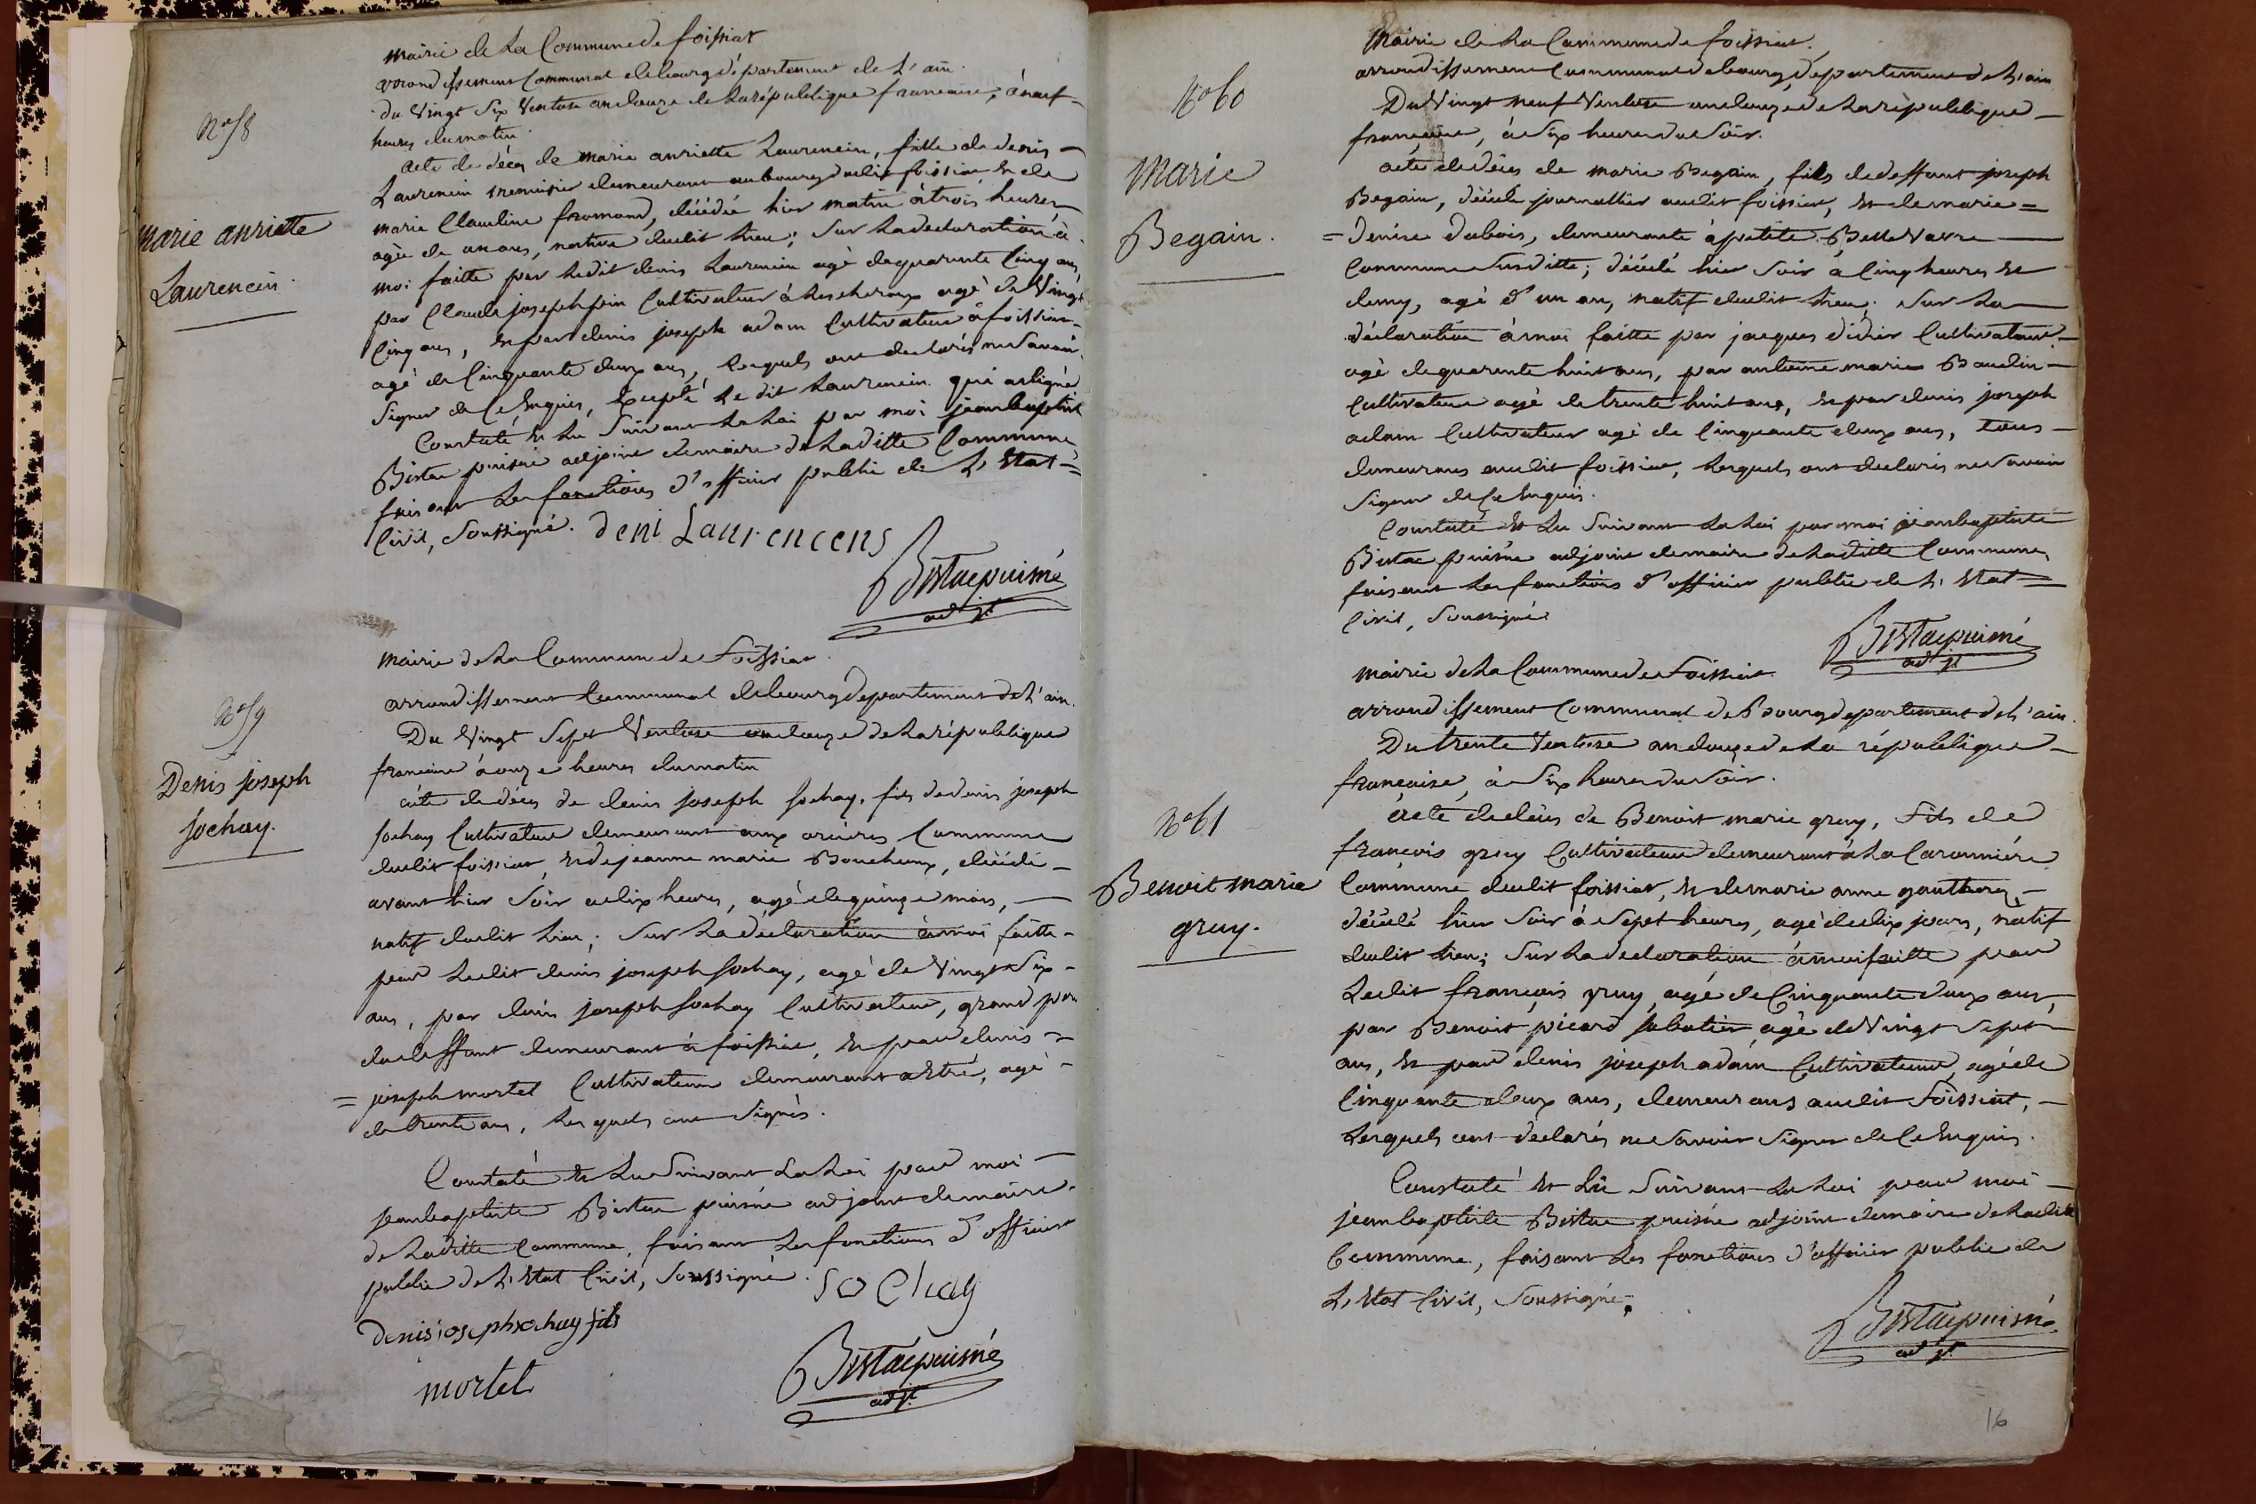 mairie de La Commune de foissiat
arrondissement Communal de bourg département de L'ain.
du Vingt Six Ventose an douze de La république francaise, à neuf
heures du matin
N° 58
marie anriette
Laurencin.
acte de décès de marie anriette Laurencin, fille de denis
Laurencin menuisier demeurant au bourg dudit foissiat et de
marie Claudine fromond, décédée hier matin à trois heures
agée de un ans, native dudit Lieu; Sur La declaration à
moi faitte par Ledit denis Laurencin agé de quarente Cinq ans,
par Claude joseph Cultivateur à agé de Vingt
Cinq ans, et par denis joseph adam Cultivateur à foissiat
agé de Cinquante deux ans, Lesquels ont declarés ne Savoir
Signer de Ce Enquis, Excepté Le dit Laurencin qui a signé
Constaté et Lu Suivant La Loi par moi jean baptiste
Bistac puisné adjoint demaire de Laditte Commune
faisant Les fonctions d'officier public de L'Etat =
Civil, Soussigné. deni Laurencens
Bistac puisné
adjt.
mairie de La Commune de Foissiat
arrondissement Communal de bourg département de L'ain.
N° 59
Denis joseph
Sochay.
Du Vingt Sept Ventose an douze de La république
francaise à onze heures du matin
acte de décès de denis joseph Sochay, fils de denis joseph
Sochay Cultivateur demeurant aux Commune
dudit foissiat, et de jeanne marie Bouchoux, décédé
avant hier Soir à dix heures, agé de quinze mois, —
natif dudit Lieu; Sur La déclaration à moi faitte -
par Ledit denis joseph Sochay, agé de Vingt Six -
ans, par denis joseph Sochay Cultivateur, grand père
du deffunt demeurant à foissiat, et par denis =
= joseph mortel Cultivateur demeurant agé -
de trente ans, Les quels ont Signés.
Constaté et Lu Suivant La Loi par moi —
jean baptiste Bistac puisné adjoint demaire
de Laditte Commune, faisant Les fonctions d'officier
public de L'Etat Civil, Soussigné. Sochay
denis joseph sochay fils
mortel
Bistac puisné
adjt.
Mairie de La Commune de foissiat.
arrondissement Communal de bourg, departement de L'ain
N° 60
Marie
Begain.
Du Vingt neuf Ventose an douze de La république —
française, à Six heures du Soir.
acte de décès de marie Begain, fils de deffunt joseph
Begain, décédé journallier audit foissiat, et de marie =
= denise dubois, demeurante à petite Bellevavre —
Commune Susditte; décédé hier Soir à Cinq heures et
demy, agé d'un an, natif dudit Lieu; Sur La —
déclaration à moi faitte par jacques didier Cultivateur -
agé de quarente huit ans, par antoine marie Baudin -
Cultivateur agé de trente huit ans, et par denis joseph
adam Cultivateur agé de Cinquante deux ans, tous -
demeurans audit foissiat, Lesquels ont declarés ne Savoir
Signer de Ce Enquis.
Constaté et Lu Suivant La Loi par moi jean baptiste
Bistac puisné adjoint demaire de Laditte Commune,
faisant Les fonctions d'officier public de L'Etat =
Civil, Soussigné
Bistac puisné
adjt.
mairie de La Commune de Foissiat
arrondissement Communal de Bourg departement de L'ain.
Du trente Ventose an douze de La république —
française, à Six heures du Soir.
N° 61
Benoit marie
gruy.
acte de décès de Benoit marie gruy, fils de
françois gruy Cultivateur demeurant à La Caronniére
Commune dudit foissiat, et de marie anne gautheret -
décédé hier Soir à Sept heures, agé de dix jours, natif
dudit Lieu; Sur La declaration à moi faitte par
Ledit françois gruy, agé de Cinquante deux ans,
par Benoit picard Sabotier agé de Vingt Sept
ans, et par denis joseph adam Cultivateur, agé de
Cinquante deux ans, demeurans audit Foissiat, —
Lesquels ont déclarés ne Savoir Signer de Ce Enquis.
Constaté et Lu Suivant La Loi par moi —
jean baptiste Bistac puisné adjoint demaire de Laditte
Commune, faisant Les fonctions d'officier public de
L'Etat Civil, Soussigné.
Bistac puisné
adjt.
16